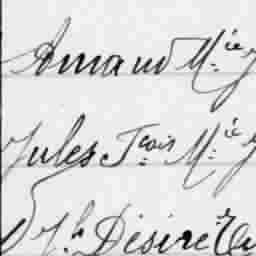 Armand M.ie
Jules Fcois M.ie
Jh Désiré